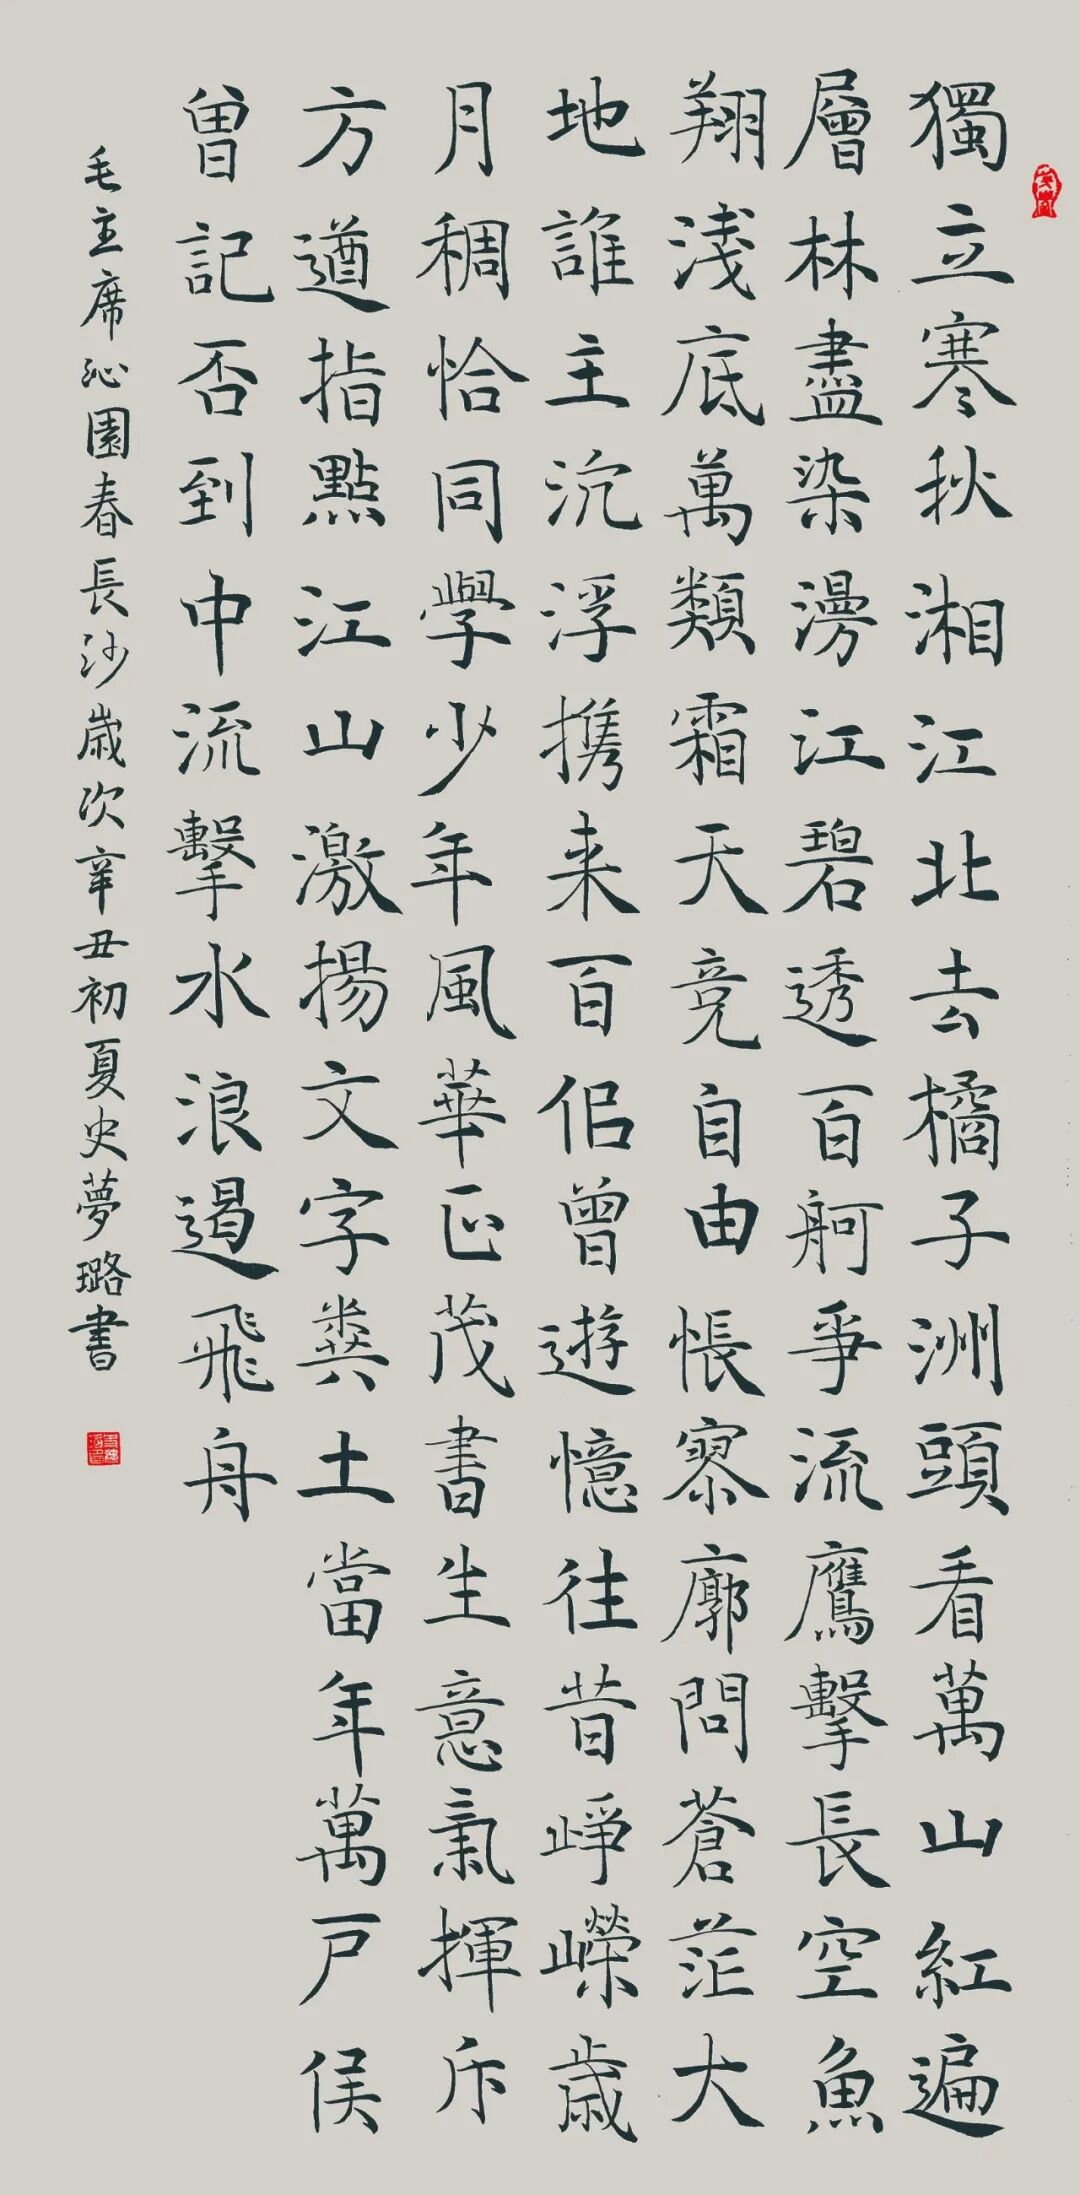 獨立寒秋湘江北去橘子洲頭看萬山紅遍
層林盡染漫江碧透百舸爭流鷹擊長空魚
翔淺底萬類霜天竞自由悵寥廓問蒼茫大
地誰主沉浮携来百侣曾遊憶往昔崢嶸歲
月稠恰同學少年風華正茂書生意氣揮斥
方遒指點江山激揚文字糞土當年萬户侯
曾記否到中流擊水浪遏飛舟
毛主席沁園春長沙歲次辛丑初夏史夢璐書